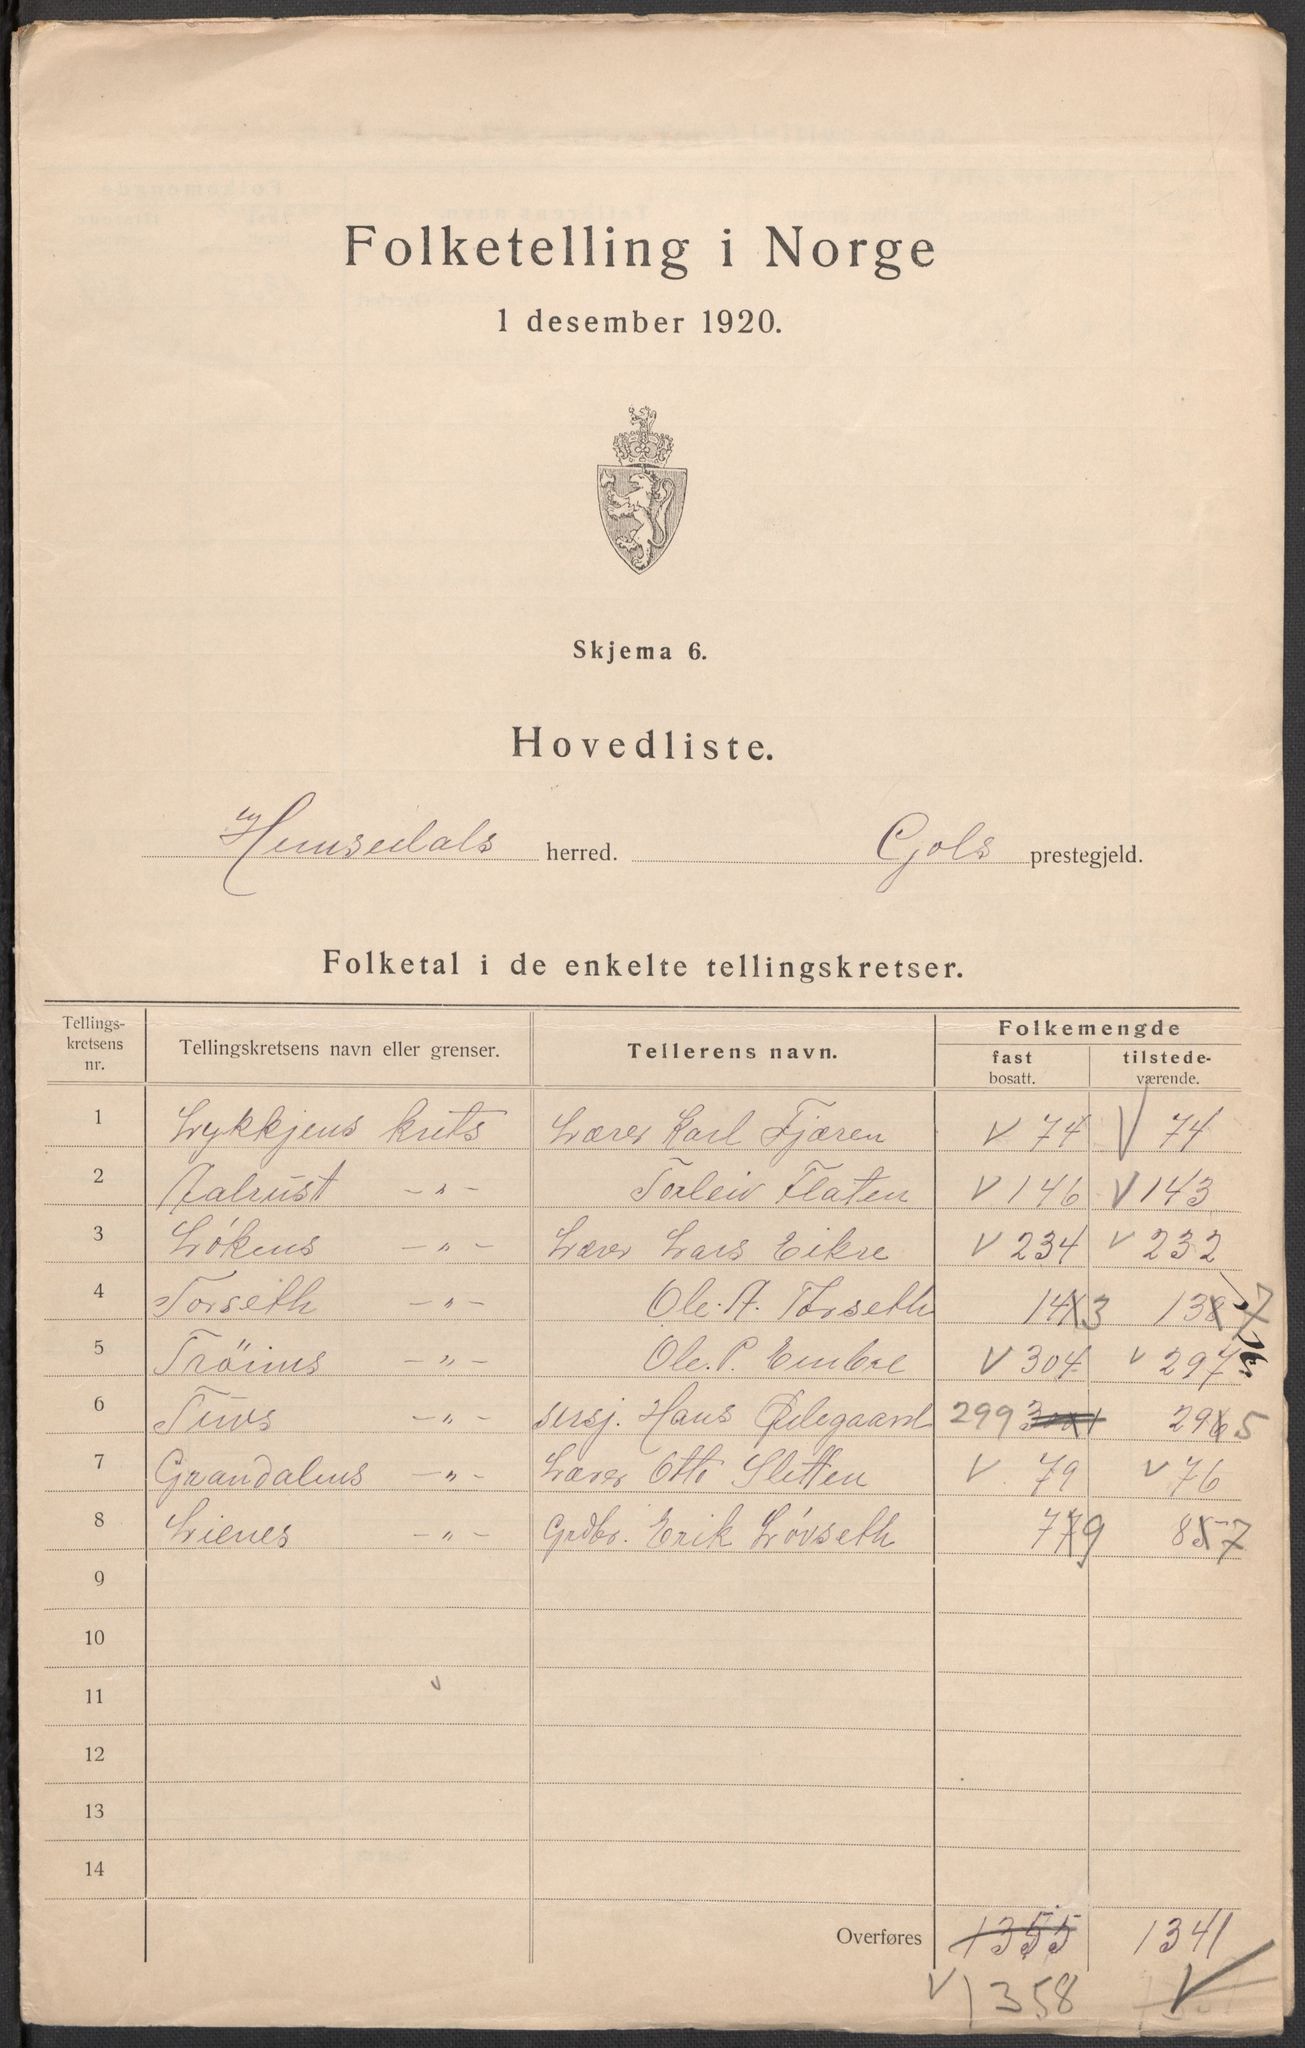 Folketelling i Norge
1 desember 1920.
Skjema 6.
Hovedliste.
Hemsedals herred. Gols prestegjeld.
Folketal i de enkelte tellingskretser.
Tellings-kretsens nr. Tellingskretsens navn eller grenser. Tellerens navn. Folkemengde
fast bosatt. tilstede-værende.
1 Lykkjens krets Lærer Karl Fjæren V 74 V 74
2 Aalrust -"- Torleiv Flaten V 146 V 143
3 Løkens -"- Lærer Lars Eikre V 234 V 232
4 Torseth -"- Ole. A. Torseth 1443 1387
5 Tröims -"- Ole. P. Embre V 304 V 297
6 Tuvs -"- sersj. Hans Ødegaard 299 301 2965
7 Grøndalens -"- Lærer Otto Sletten V 79 V 76
8 Lienes -"- Grdbr. Erik Løvseth 779 857
9
10
11 v
12
13
14
Overføres 1355 1341
V 1358 V